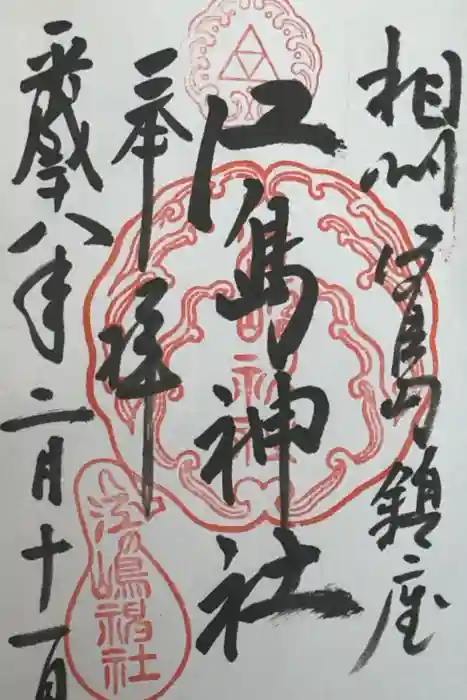 相州江島鎮座
江島神社
奉拝
平成二十八年二月十一日
江嶋神社